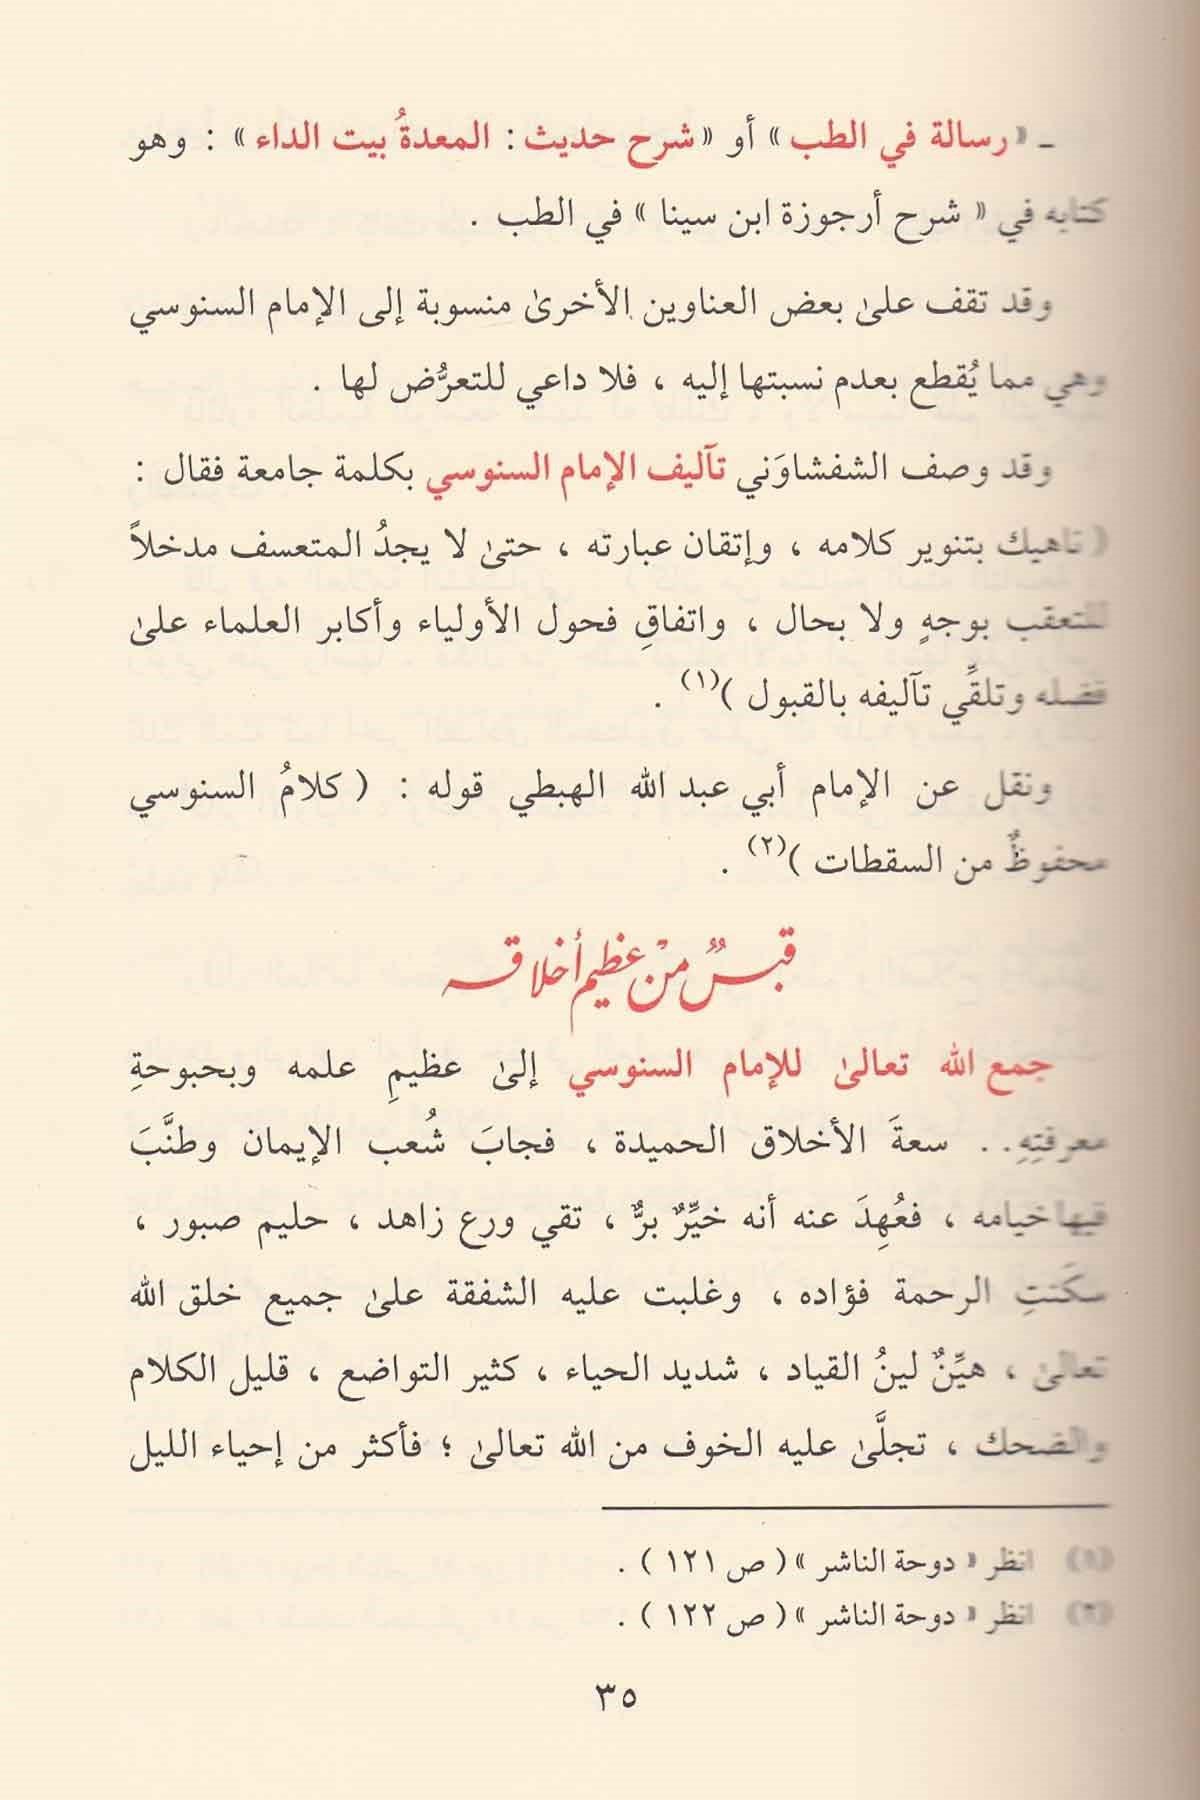 ـ « رسالة في الطب » أو « شرح حديث : المعدةُ بيت الداء » : وهو
كتابه في « شرح أرجوزة ابن سينا » في الطب .
وقد تقف علىٰ بعض العناوين الأخرىٰ منسوبة إلى الإمام السنوسي
وهي مما يُقطع بعدم نسبتها إليه ، فلا داعي للتعرُّض لها .
وقد وصف الشفشاوَني تآليف الإمام السنوسي بكلمة جامعة فقال :
( ناهيك بتنوير كلامه ، وإتقان عبارته ، حتىٰ لا يجدُ المتعسف مدخلاً
للتعقب بوجهٍ ولا بحال ، واتفاقِ فحول الأولياء وأكابر العلماء علىٰ
فضله وتلقِّي تآليفه بالقبول )(١) .
ونقل عن الإمام أبي عبد الله الهبطي قوله : ( كلامُ السنوسي
محفوظٌ من السقطات )(٢) .
قبسٌ من عظيم أخلاقه
جمع الله تعالىٰ للإمام السنوسي إلىٰ عظيمِ علمه وبحبوحةِ
معرفتِهِ.. سعةَ الأخلاق الحميدة ، فجابَ شُعب الإيمان وطنَّبَ
فيها خيامه ، فعُهِدَ عنه أنه خيِّرٌ برٌّ ، تقي ورع زاهد ، حليم صبور ،
سكَنتِ الرحمة فؤاده ، وغلبت عليه الشفقة علىٰ جميع خلق الله
تعالىٰ ، هيِّنٌ لينُ القياد ، شديد الحياء ، كثير التواضع ، قليل الكلام
والضحك ، تجلَّىٰ عليه الخوف من الله تعالىٰ ؛ فأكثر من إحياء الليل
(١) انظر « دوحة الناشر » ( ص ١٢١ ) .
(٢) انظر « دوحة الناشر » ( ص ١٢٢ ) .
٣٥